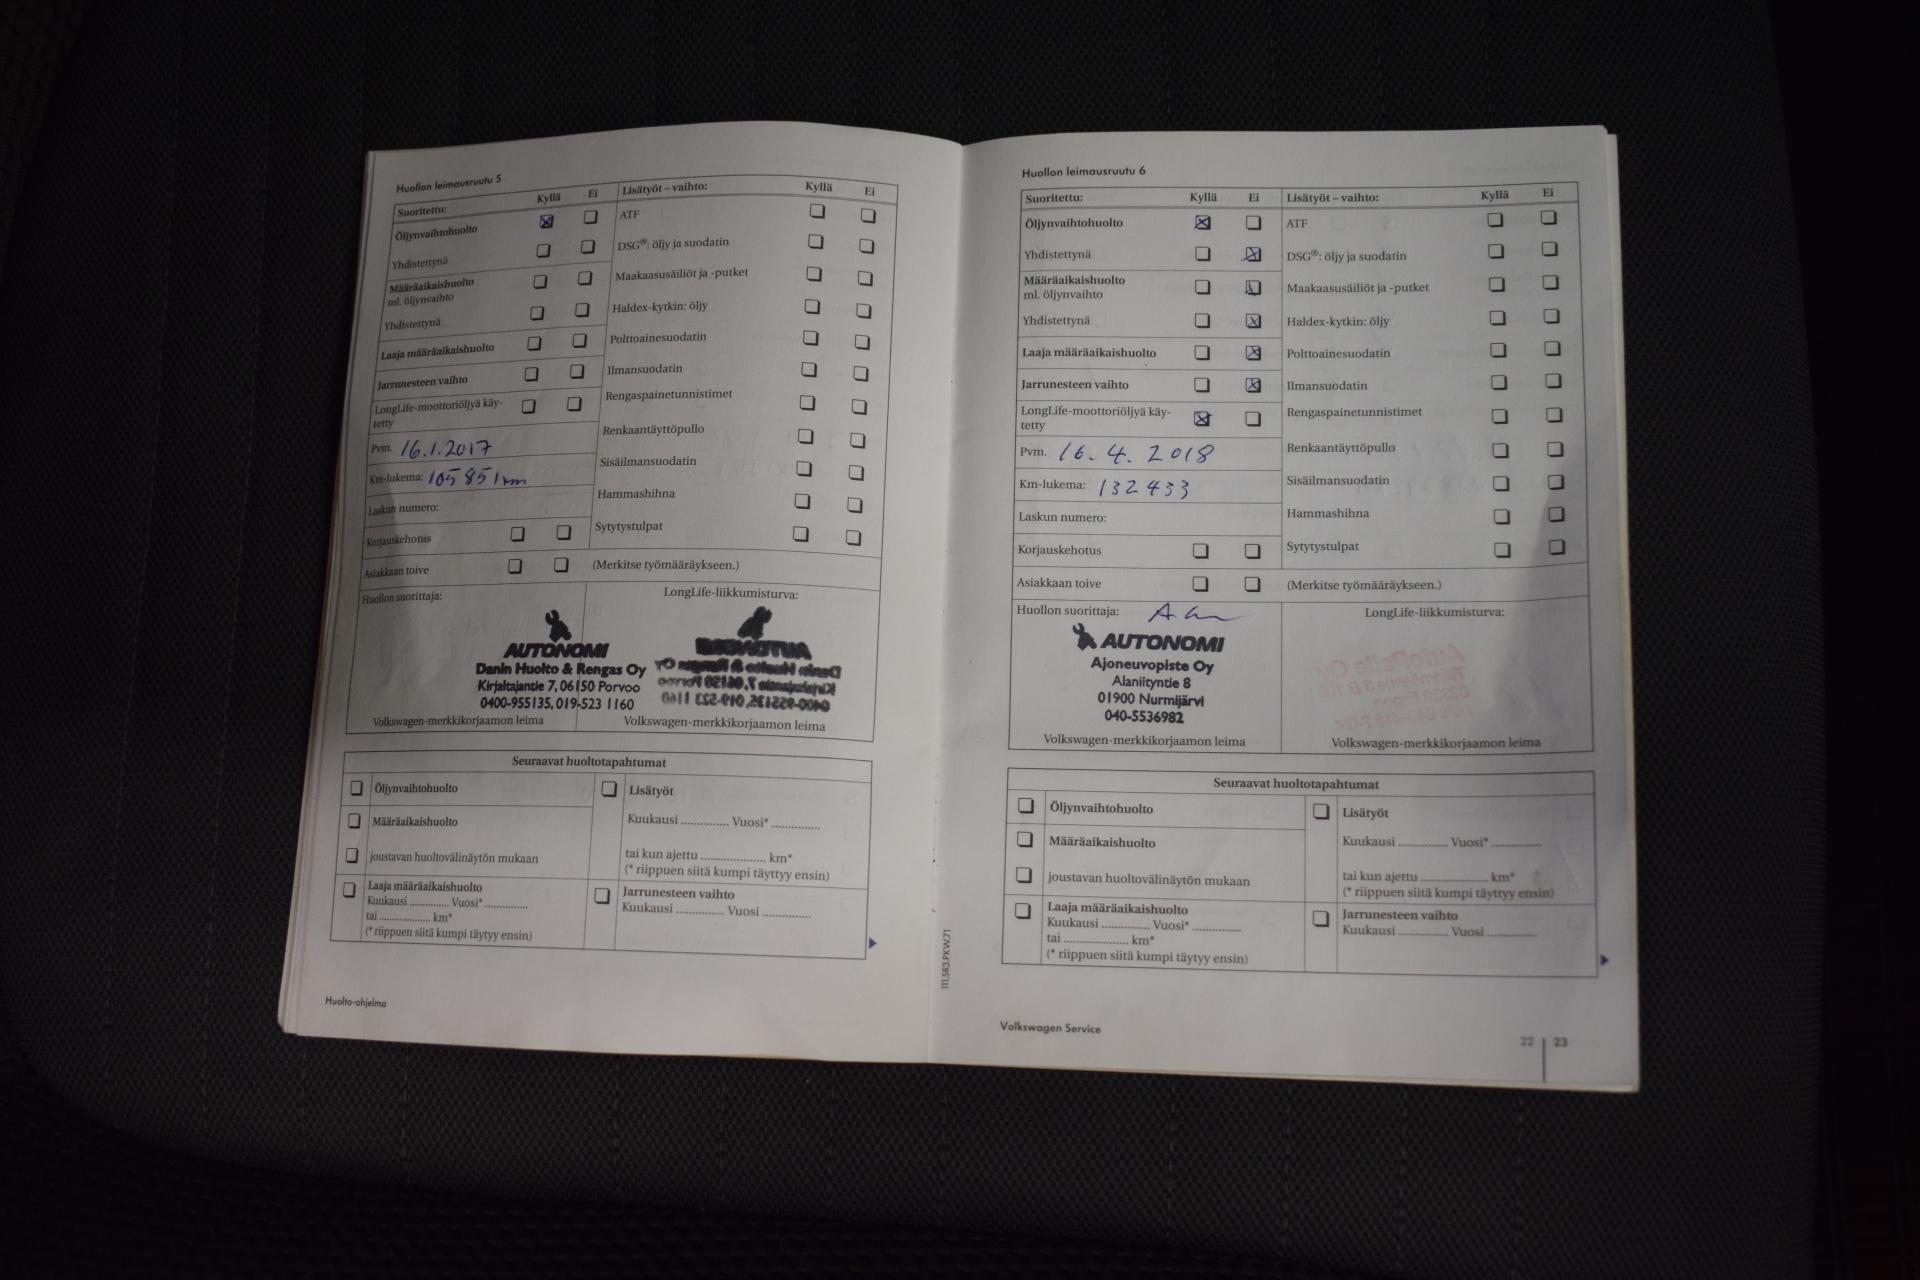 Huollon leimausruutu 5
Suoritettu: Kyllä Ei
Öljynvaihtohuolto
Yhdistettynä
Määräaikaishuolto
ml. öljynvaihto
Yhdistettynä
Laaja määräaikaishuolto
Jarrunesteen vaihto
LongLife-moottoriöljyä käy-
tetty
Pvm. 16.1.2017
Km-lukema: 105851 km
Laskun numero:
Korjauskehotus
Asiakkaan toive
Lisätyöt – vaihto: Kyllä Ei
ATF
DSG®: öljy ja suodatin
Maakaasusäiliöt ja -putket
Haldex-kytkin: öljy
Polttoainesuodatin
Ilmansuodatin
Rengaspainetunnistimet
Renkaantäyttöpullo
Sisäilmansuodatin
Hammashihna
Sytytystulpat
(Merkitse työmääräykseen.)
Huollon suorittaja:
AUTONOMI
Danin Huolto & Rengas Oy
Kirjaltajantie 7, 06150 Porvoo
0400-955135, 019-523 1160
Volkswagen-merkkikorjaamon leima
LongLife-liikkumisturva:
AUTONOMI
Danin Huolto & Rengas Oy
Kirjaltajantie 7, 06150 Porvoo
0400-955135, 019-523 1160
Volkswagen-merkkikorjaamon leima
Seuraavat huoltotapahtumat
Öljynvaihtohuolto
Määräaikaishuolto
joustavan huoltovälinäytön mukaan
Laaja määräaikaishuolto
Kuukausi .............. Vuosi* ...............
tai .................. km*
(* riippuen siitä kumpi täytyy ensin)
Lisätyöt
Kuukausi ............... Vuosi* ...............
tai kun ajettu .................... km*
(* riippuen siitä kumpi täyttyy ensin)
Jarrunesteen vaihto
Kuukausi ............... Vuosi ...............
Huolto-ohjelma
111.5R3.PKW.71
Huollon leimausruutu 6
Suoritettu: Kyllä Ei
Öljynvaihtohuolto
Yhdistettynä
Määräaikaishuolto
ml. öljynvaihto
Yhdistettynä
Laaja määräaikaishuolto
Jarrunesteen vaihto
LongLife-moottoriöljyä käy-
tetty
Pvm. 16.4.2018
Km-lukema: 132433
Laskun numero:
Korjauskehotus
Asiakkaan toive
Lisätyöt – vaihto: Kyllä Ei
ATF
DSG®: öljy ja suodatin
Maakaasusäiliöt ja -putket
Haldex-kytkin: öljy
Polttoainesuodatin
Ilmansuodatin
Rengaspainetunnistimet
Renkaantäyttöpullo
Sisäilmansuodatin
Hammashihna
Sytytystulpat
(Merkitse työmääräykseen.)
Huollon suorittaja:
AUTONOMI
Ajoneuvopiste Oy
Alaniityntie 8
01900 Nurmijärvi
040-5536982
Volkswagen-merkkikorjaamon leima
LongLife-liikkumisturva:
AutoPelle Oy
Volkswagen-merkkikorjaamon leima
Seuraavat huoltotapahtumat
Öljynvaihtohuolto
Määräaikaishuolto
joustavan huoltovälinäytön mukaan
Laaja määräaikaishuolto
Kuukausi .............. Vuosi* ...............
tai .................... km*
(* riippuen siitä kumpi täytyy ensin)
Lisätyöt
Kuukausi ............... Vuosi* ...............
tai kun ajettu .................... km*
(* riippuen siitä kumpi täyttyy ensin)
Jarrunesteen vaihto
Kuukausi ............... Vuosi ...............
Volkswagen Service
22 23